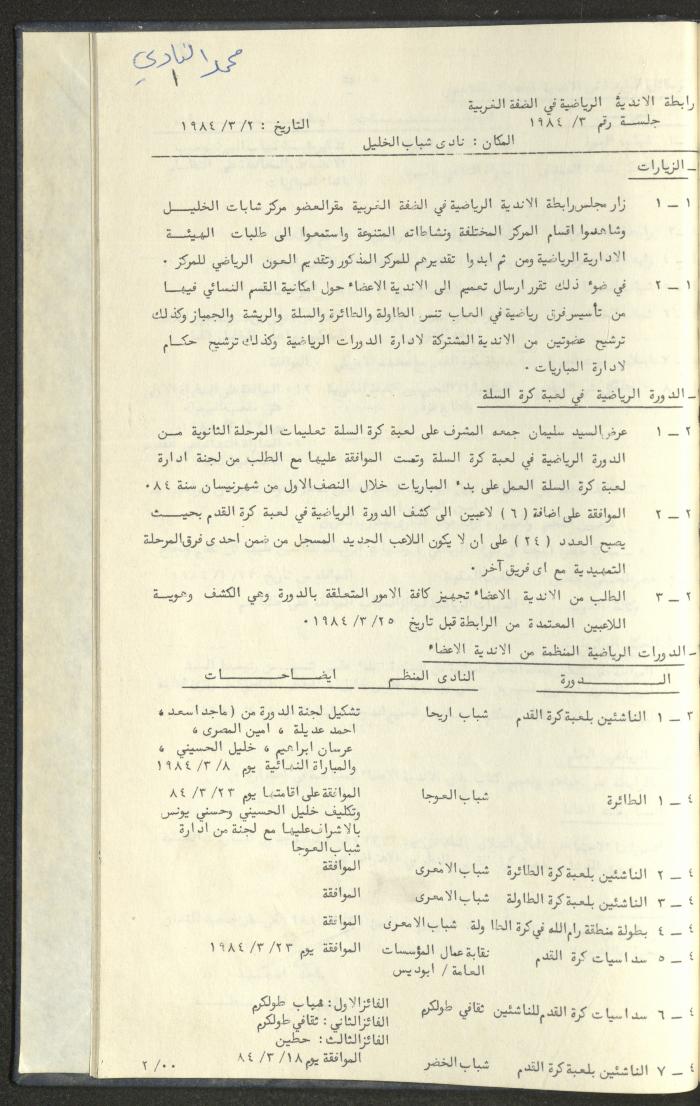 محمد النادي
١
رابطة الاندية الرياضية في الضفة الغربية
جلسة رقم ٣/ ١٩٨٤ التاريخ : ٢/ ٣/ ١٩٨٤
المكان : نادى شباب الخليل
ـ الزيارات
١ ــ ١ زار مجلس رابطة الاندية الرياضية في الضفة الغربية مقر العضو مركز شابات الخليــل
وشاهدوا اقسام المركز المختلفة ونشاطاته المتنوعة واستمعوا الى طلبات الهيئــة
الادارية الرياضية ومن ثم ابدوا تقديرهم للمركز المذكور وتقديم العون الرياضي للمركز .
١ ــ ٢ في ضوء ذلك تقرر ارسال تعميم الى الاندية الاعضاء حول امكانية القسم النسائي فيهـا
من تأسيس فرق رياضية في العاب تنس الطاولة والطائرة والسلة والريشة والجمباز وكذلك
ترشيح عضوتين من الاندية المشتركة لادارة الدورات الرياضية وكذلك ترشيح حكــام
لادارة المباريات .
ـ الدورة الرياضية في لعبة كرة السلة
٢ ــ ١ عرض السيد سليمان جمعه المشرف على لعبة كرة السلة تعليمات المرحلة الثانوية مــن
الدورة الرياضية في لعبة كرة السلة وتمت الموافقة عليها مع الطلب من لجنة ادارة
لعبة كرة السلة العمل على بدء المباريات خلال النصف الاول من شهر نيسان سنة ٨٤.
٢ ــ ٢ الموافقة على اضافة ( ٦ ) لاعبين الى كشف الدورة الرياضية في لعبة كرة القدم بحيــث
يصبح العدد ( ٢٤ ) على ان لا يكون اللاعب الجديد المسجل من ضمن احدى فرق المرحلة
التمهيدية مع اى فريق آخر .
٢ ــ ٣ الطلب من الاندية الاعضاء تجهيز كافة الامور المتعلقة بالدورة وهي الكشف وهويــة
اللاعبين المعتمدة من الرابطة قبل تاريخ ٢٥/ ٣/ ١٩٨٤.
ـ الدورات الرياضية المنظمة من الاندية الاعضاء
الـــــدورة النادى المنظــم ايضــاحــــات
٣ ــ ١ الناشئين بلعبة كرة القدم شباب اريحا تشكيل لجنة الدورة من ( ماجد اسعد ،
احمد عديلة ، امين المصرى ،
عرسان ابراهيم ، خليل الحسيني ،
والمباراة النهائية يوم ٨/ ٣/ ١٩٨٤
٤ ــ ١ الطائرة شباب العوجا الموافقة على اقامتها يوم ٢٣/ ٣/ ٨٤
وتكليف خليل الحسيني وحسني يونس
بالاشراف عليها مع لجنة من ادارة
شباب العوجا
٤ ــ ٢ الناشئين بلعبة كرة الطائرة شباب الامعرى الموافقة
٤ ــ ٣ الناشئين بلعبة كرة الطاولة شباب الامعرى الموافقة
٤ ــ ٤ بطولة منطقة رام الله في كرة الطاولة شباب الامعرى الموافقة
٤ ــ ٥ سداسيات كرة القدم نقابة عمال المؤسسات الموافقة يوم ٢٣/ ٣/ ١٩٨٤
العامة / ابوديس
٤ ــ ٦ سداسيات كرة القدم للناشئين ثقافي طولكرم الفائز الاول : شباب طولكرم
الفائز الثاني : ثقافي طولكرم
الفائز الثالث : حطين
٤ ــ ٧ الناشئين بلعبة كرة القدم شباب الخضر الموافقة يوم ١٨/ ٣/ ٨٤
٢ /..